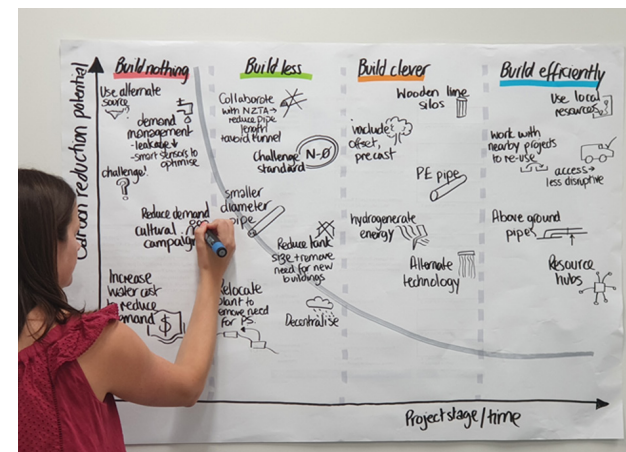 Carbon reduction potential
Build nothing
Use alternate
source
demand
management
-leakage ↓
-smart sensors to
optimise
challenge!
?
Reduce demand
cultural
campaign
Increase
water cost
to reduce
demand
$
Build less
Collaborate
with NZTA→
reduce pipe
length
toward tunnel
challenge N-0
standard
smaller
diameter
pipe
Reduce tank
size + remove
need for new
buildings
Relocate
plant to
remove need
for PS.
Decentralise
Build clever
Wooden lime
silos
include
offset,
precast
PE pipe
hydrogenerate
energy
Alternate
technology
Build efficiently
Use local
resources
Work with
nearby projects
to re-use
access→
less disruptive
Above ground
pipe
Resource
hubs
Project stage/time